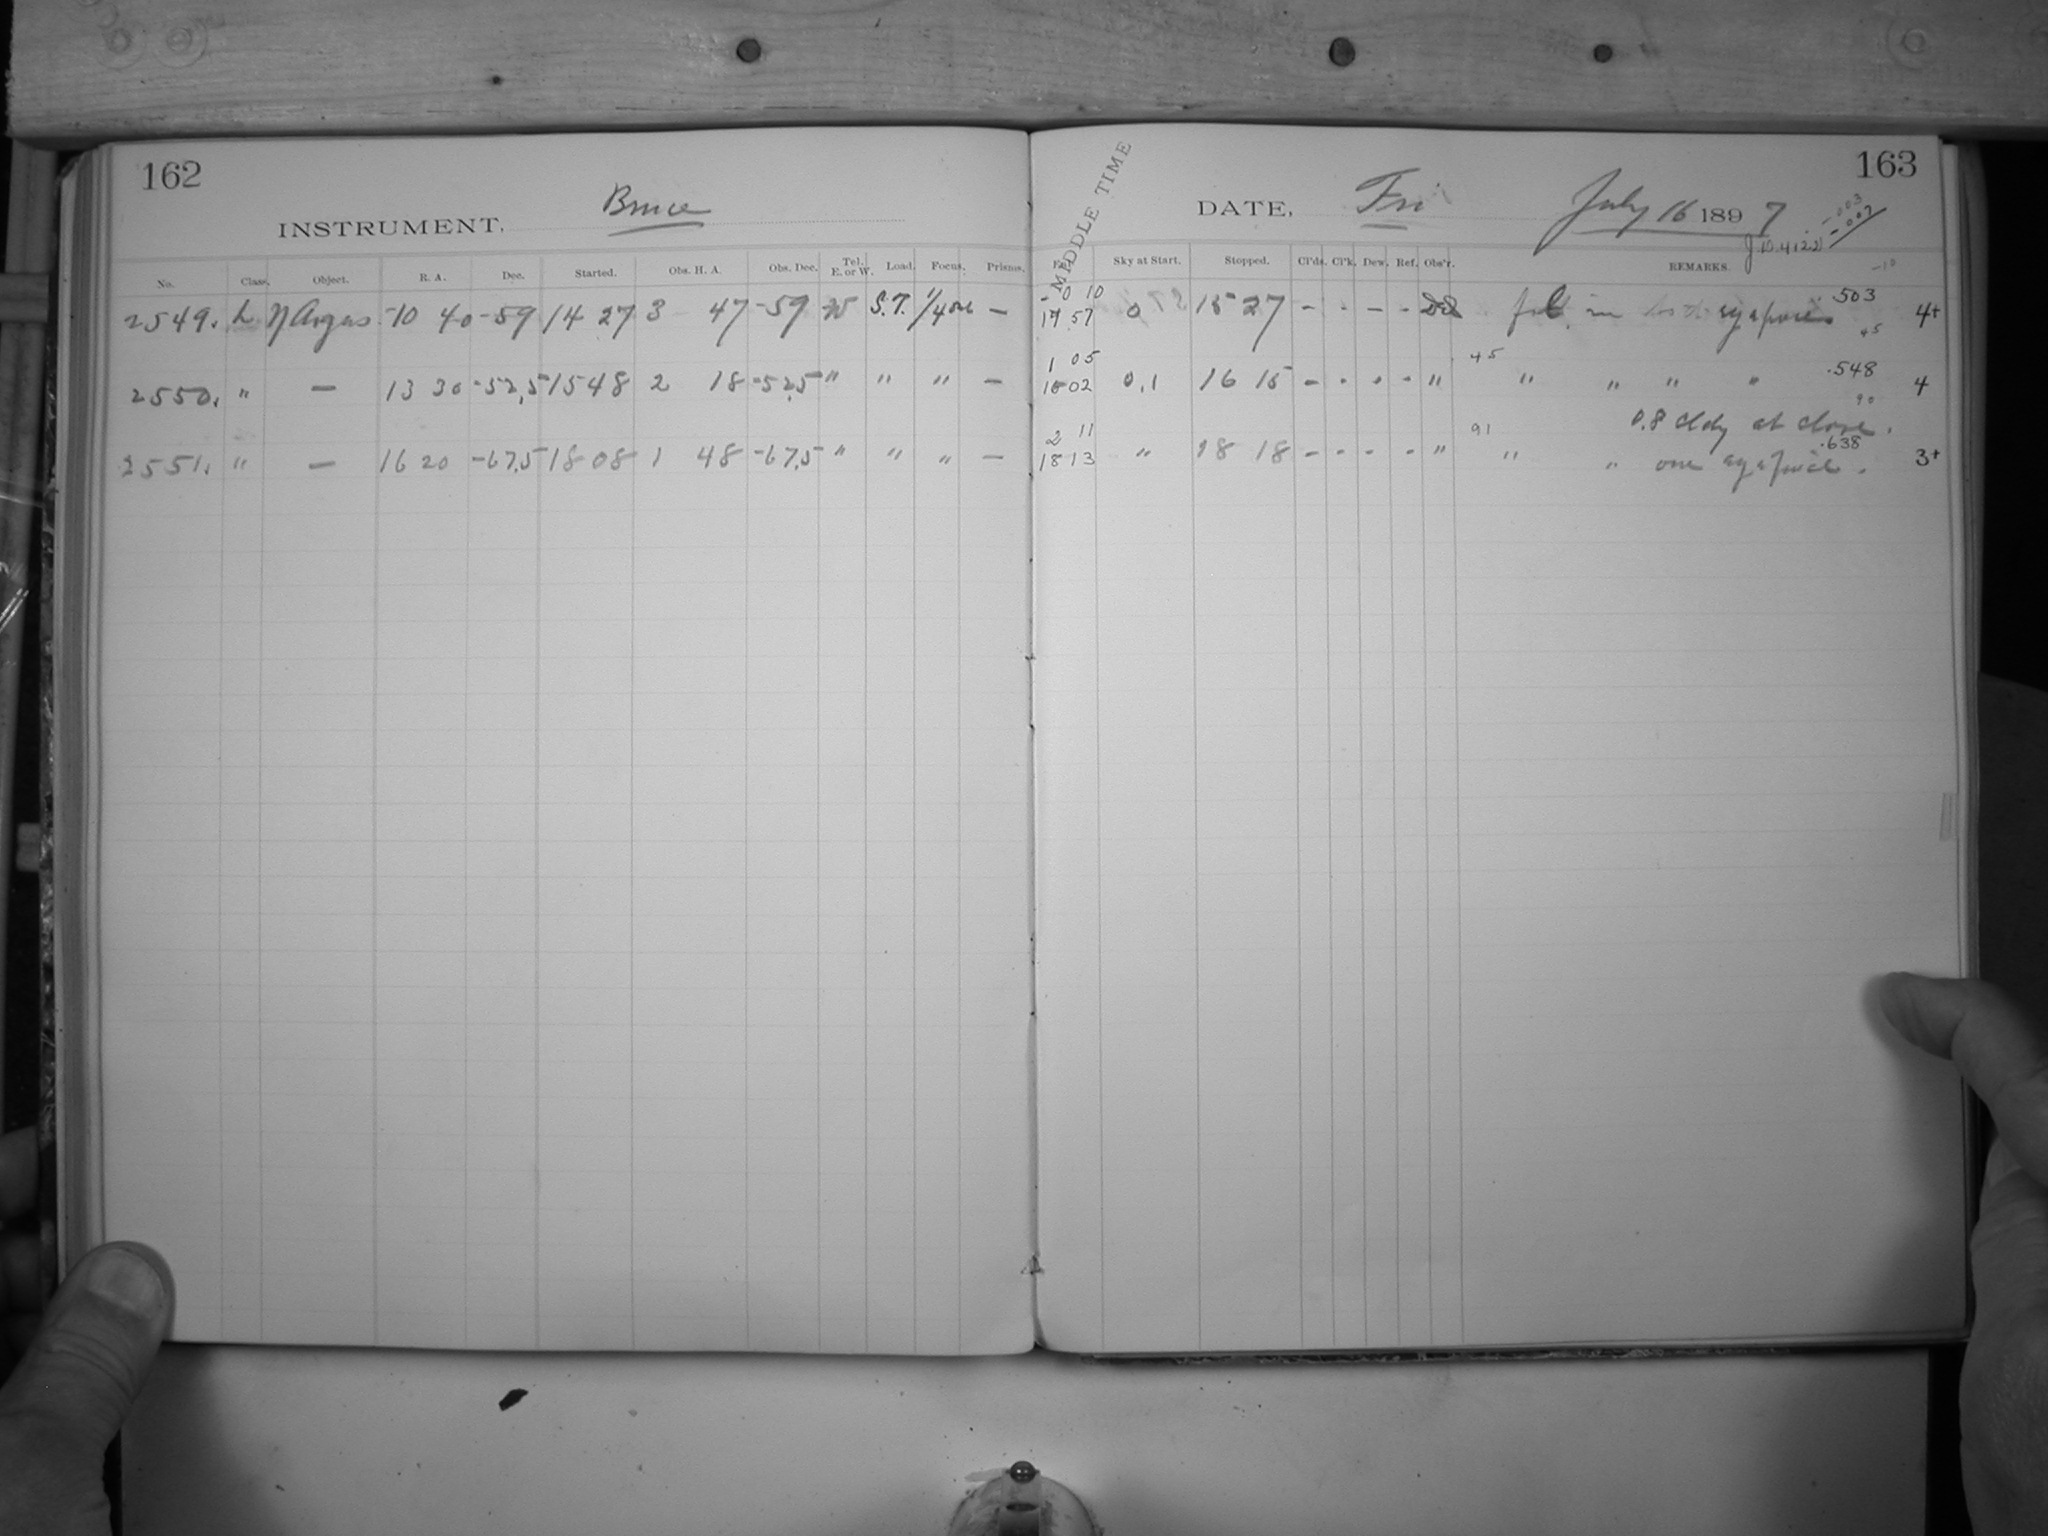 162
INSTRUMENT, Bruce
No. Class. Object. R. A. Dec. Started. Obs. H. A. Obs. Dec. Tel. E. or W. Load. Focus. Prisms.
2549. L η Argus 10 40 -59 14 27 3 47 -59 W S.T. 1/4 one —
2550. " — 13 30 -52,5 15 48 2 18 -52,5 " " " —
2551. " — 16 20 -67,5 18 08 1 48 -67,5 " " " —
163
MIDDLE TIME
DATE, Fri July 16 1897
-.003
-.007
J.D. 4122
Sky at Start. Stopped. Cl'ds. Cl'k. Dew. Ref. Obs'r. REMARKS.
-10
0 10 .503
14 57 0 15 27 - - - - fol. in both 4+
45
1 05 45 .548
16 02 0,1 16 15 - - - - " " " " " 4
90
0.8 cldy at close.
2 11 91 .638
18 13 " 18 18 - - - - " " " one 3+